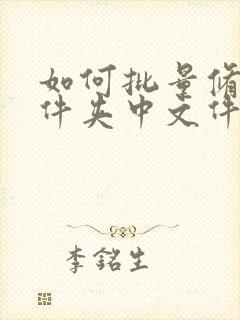 如何批量修
件夹中文件
李銘生